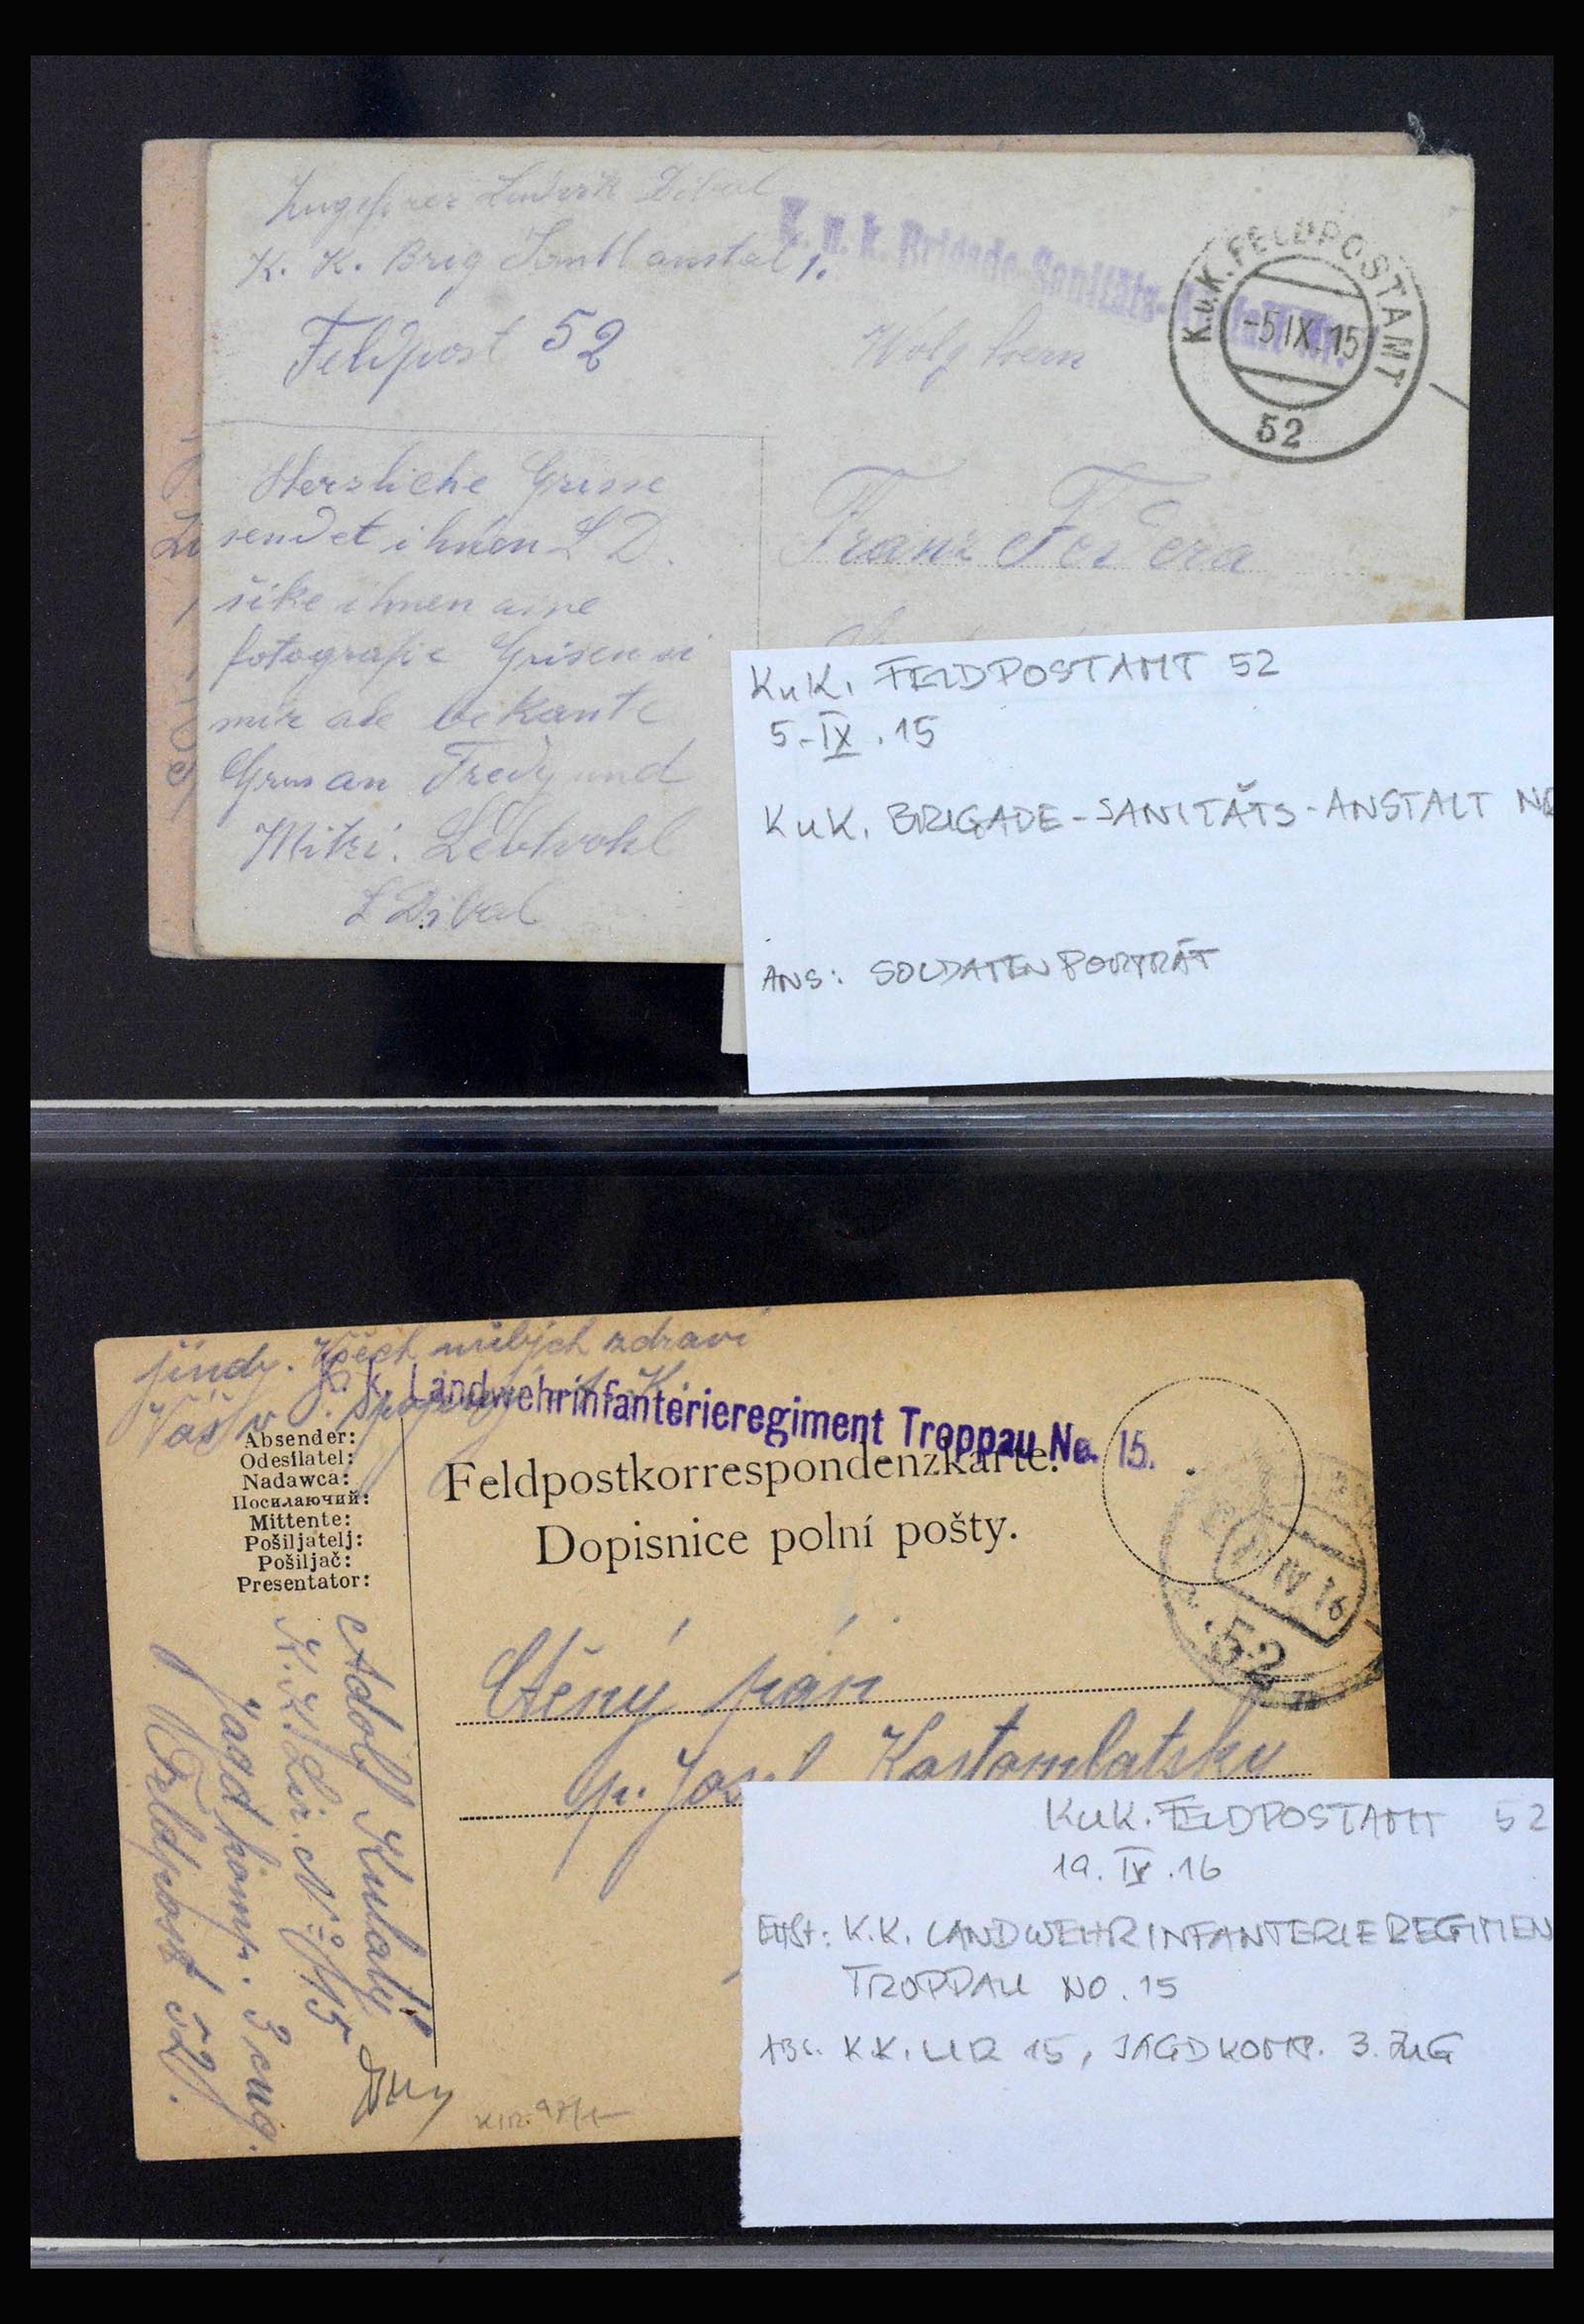 Zugsfürer Ludvik Dibal
K. K. Brig Sanitl anstal 1.
Feldpost 52
K. u. k. Brigade-Sanitäts-Anstalt Nr.
K.u.K. FELDPOSTAMT
-5.IX.15
52
Herzliche Grusse
sendet ihnen L D.
šike ihnen aine
fotografie Grisen si
mir ale bekante
Grus an Fredy und
Mitzi. Lebtvohl
L Dibal
Franz Federa
KuK. FELDPOSTAMT 52
5.IX.15
KuK. BRIGADE-SANITÄTS-ANSTALT NR
ANS: SOLDATENPORTRÄT
jindy. Všech milých zdraví
Váš
k. k. Landwehrinfanterieregiment Troppau No. 15.
Absender:
Odesílatel:
Nadawca:
Посилаючий:
Mittente:
Pošiljatelj:
Pošiljač:
Presentator:
Feldpostkorrespondenzkarte.
Dopisnice polní pošty.
IV 16
52
Ctěný pán
p. Josef Kostomlatsky
Adolf Kulatý
K. K. Lir. N° 15
Jagd komp. 3 cug.
Feldpost 52.
KuK. FELDPOSTAMT 52
19. IV .16
K.K. LANDWEHRINFANTERIEREGIMEN
TROPPAU NO. 15
ABS. K.K. LIR 15, JAGDKOMP. 3. ZUG